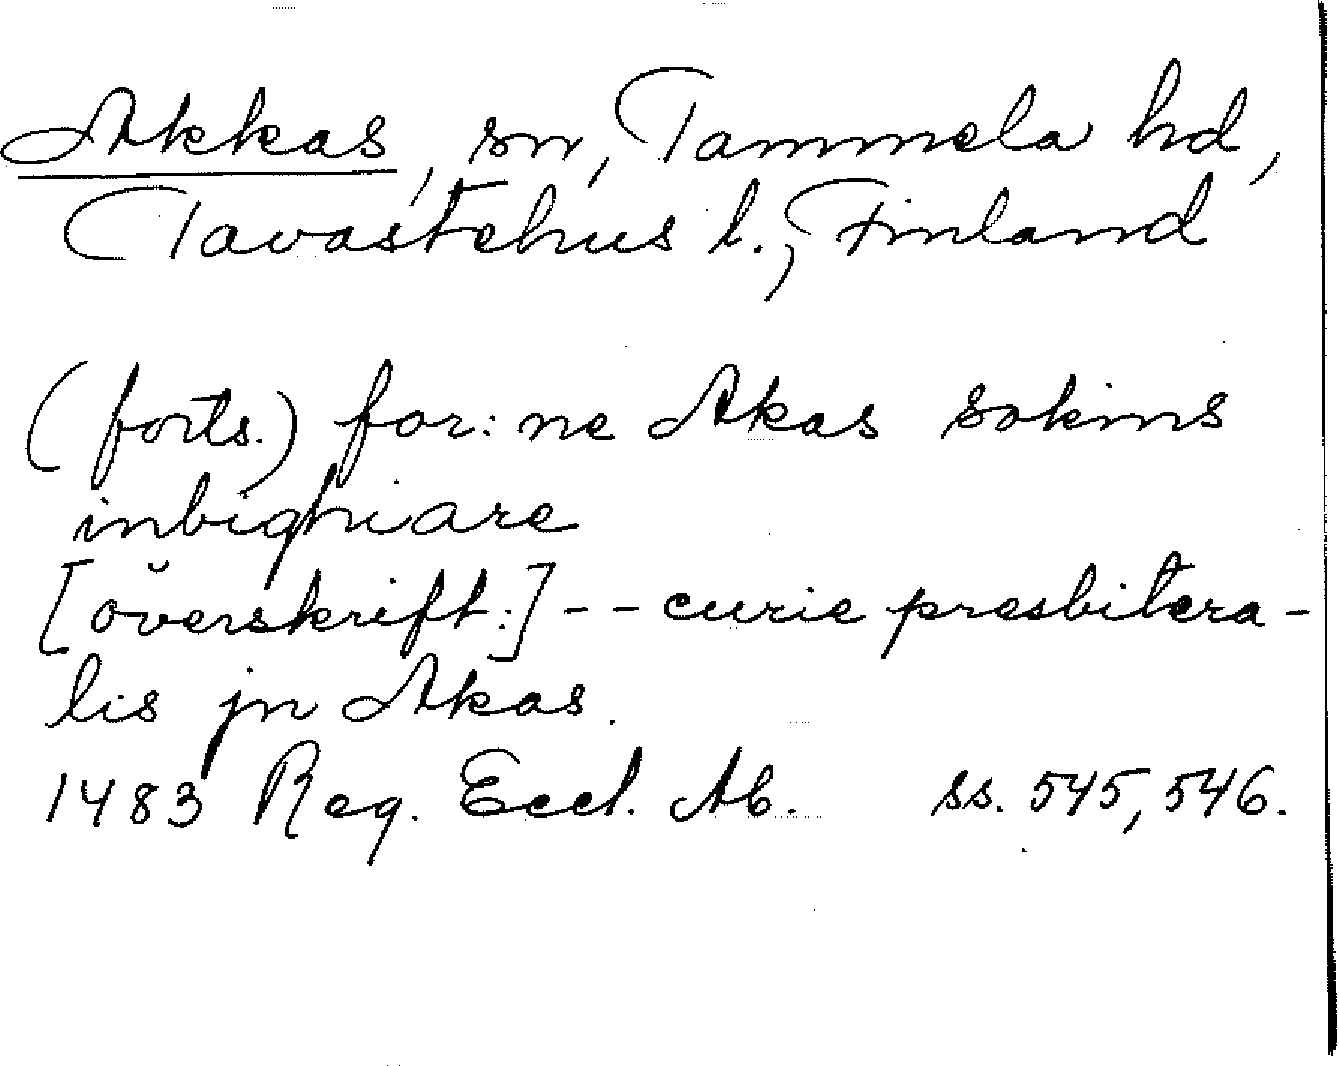 Akkas, sn, Tammela hd,
Tavastehus l., Finland
(forts.) for:ne Akas sokins
inbighiare
[överskrift:] -- curie presbitera-
lis jn Akas.
1483 Reg. Eccl. Ab. ss. 545, 546.